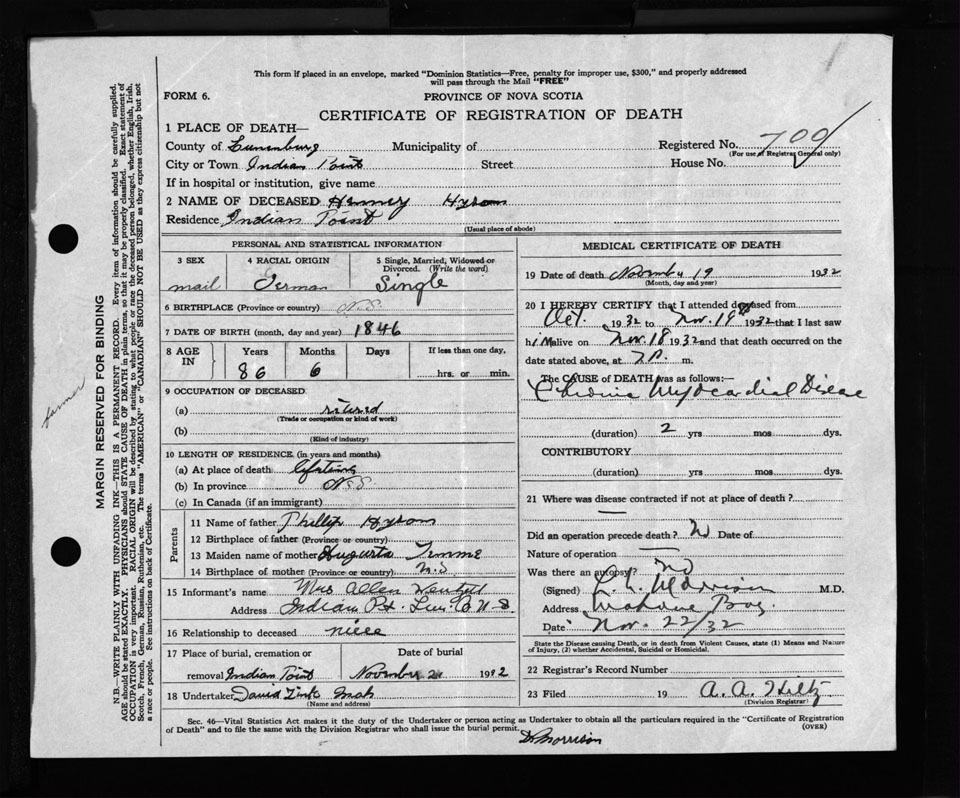 This form if placed in an envelope, marked "Dominion Statistics—Free, penalty for improper use, $300," and properly addressed
will pass through the Mail "FREE"
FORM 6. PROVINCE OF NOVA SCOTIA
CERTIFICATE OF REGISTRATION OF DEATH
1 PLACE OF DEATH—
County of Lunenburg Municipality of Registered No. 709
(For use of Registrar General only)
City or Town Indian Point Street House No.
If in hospital or institution, give name
2 NAME OF DECEASED Henney Hyson
Residence Indian Point
(Usual place of abode)
PERSONAL AND STATISTICAL INFORMATION
3 SEX 4 RACIAL ORIGIN 5 Single, Married, Widowed or
Divorced. (Write the word)
mail German Single
6 BIRTHPLACE (Province or country) N.S.
7 DATE OF BIRTH (month, day and year) 1846
8 AGE IN Years Months Days If less than one day,
86 6 hrs. or min.
9 OCCUPATION OF DECEASED
(a) retired
(Trade or occupation or kind of work)
(b)
(Kind of industry)
10 LENGTH OF RESIDENCE (in years and months)
(a) At place of death lifetime
(b) In province N.S.
(c) In Canada (if an immigrant)
Parents
11 Name of father Phillip Hyson
12 Birthplace of father (Province or country)
13 Maiden name of mother Augusta
14 Birthplace of mother (Province or country) N.S
15 Informant's name Mrs Allen
Address Indian Pt. Lun. Co N.S
16 Relationship to deceased niece
17 Place of burial, cremation or Date of burial
removal Indian Point November 21 1932
18 Undertaker David
(Name and address)
MEDICAL CERTIFICATE OF DEATH
19 Date of death November 19 1932
(Month, day and year)
20 I HEREBY CERTIFY that I attended deceased from
Oct. 1932 to Nov. 18th 1932 that I last saw
him alive on Nov. 18 1932 and that death occurred on the
date stated above, at m.
The CAUSE OF DEATH was as follows:—
Chronic Myocardial Disease
(duration) 2 yrs mos dys.
CONTRIBUTORY
(duration) yrs mos dys.
21 Where was disease contracted if not at place of death?
—
Did an operation precede death? Date of
Nature of operation —
Was there an autopsy? no
(Signed) Morrison M.D.
Address Mahone Bay
Date Nov. 22/32
State the Disease causing Death, or in death from Violent Causes, state (1) Means and Nature
of Injury, (2) whether Accidental, Suicidal or Homicidal.
22 Registrar's Record Number
23 Filed 19 A. A. Hiltz
(Division Registrar)
Sec. 46—Vital Statistics Act makes it the duty of the Undertaker or person acting as Undertaker to obtain all the particulars required in the "Certificate of Registration
of Death" and to file the same with the Division Registrar who shall issue the burial permit. (OVER)
Dr Morrison
farmer
MARGIN RESERVED FOR BINDING
N.B.—WRITE PLAINLY WITH UNFADING INK—THIS IS A PERMANENT RECORD. Every item of information should be carefully supplied.
AGE should be stated EXACTLY. PHYSICIANS should STATE CAUSE OF DEATH in plain terms, so that it may be properly classified. Exact statement of
OCCUPATION is very important. RACIAL ORIGIN will be described by stating to what people or race the deceased person belonged, whether English, Irish,
Scotch, French, German, Russian, Ruthenian, etc. The terms "AMERICAN" or "CANADIAN" SHOULD NOT BE USED as they express citizenship but not
a race or people. See instructions on back of Certificate.